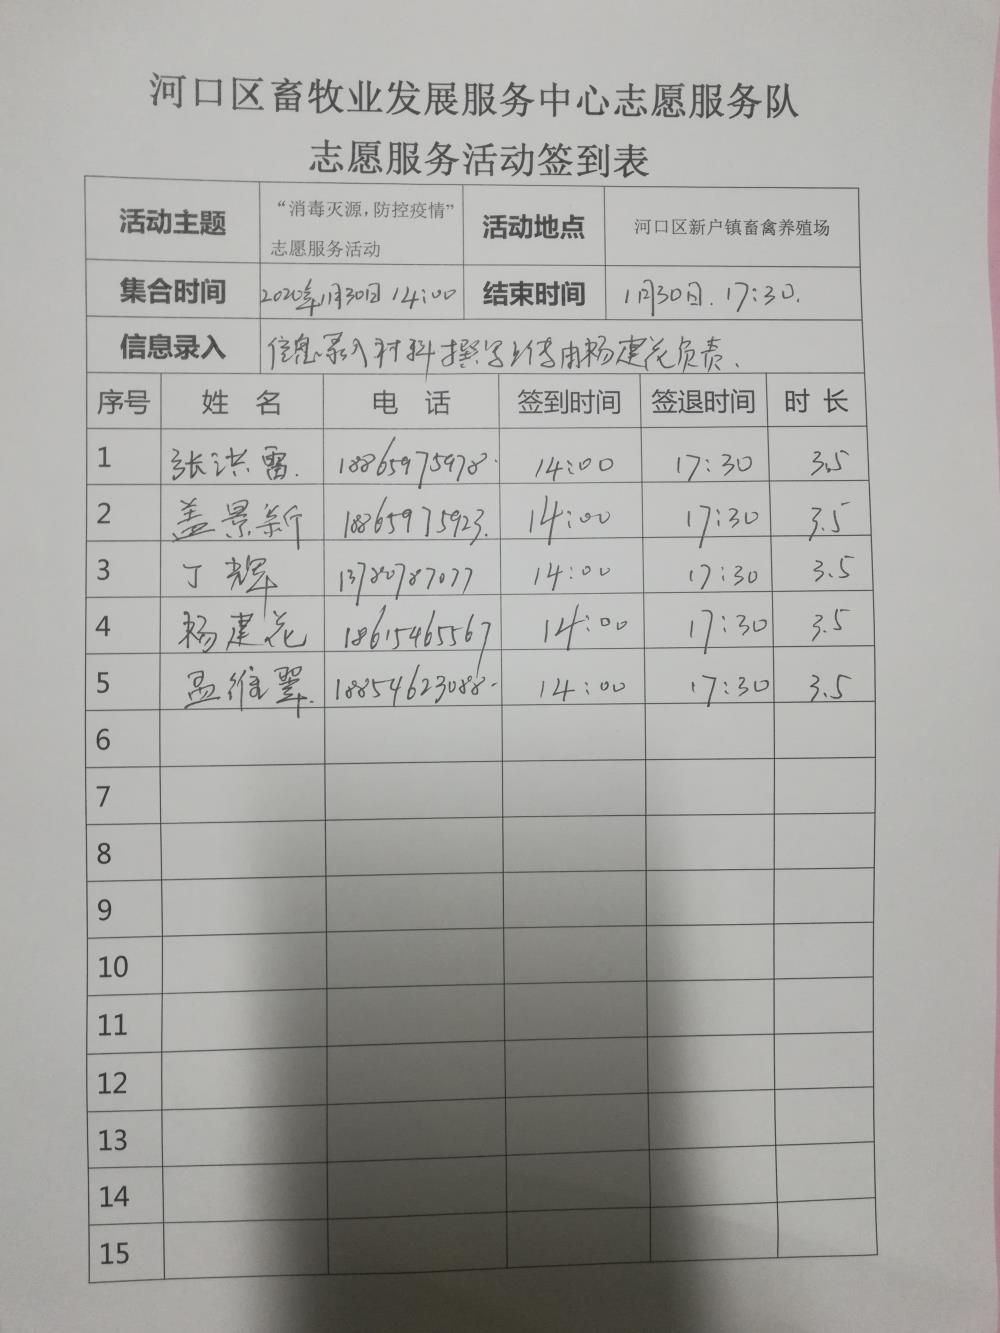 河口区畜牧业发展服务中心志愿服务队
志愿服务活动签到表
活动主题 “消毒灭源,防控疫情” 志愿服务活动 活动地点 河口区新户镇畜禽养殖场
集合时间 2020年1月30日 14:00 结束时间 1月30日. 17:30.
信息录入 信息录入材料撰写上传由杨建花负责.
序号 姓 名 电 话 签到时间 签退时间 时 长
1 张洪雷. 18865975978. 14:00 17:30 3.5
2 盖景新 18865975923. 14:00 17:30 3.5
3 丁辉 13780787077 14:00 17:30 3.5
4 杨建花 18615465567 14:00 17:30 3.5
5 孟维翠. 18854623088. 14:00 17:30 3.5
6
7
8
9
10
11
12
13
14
15